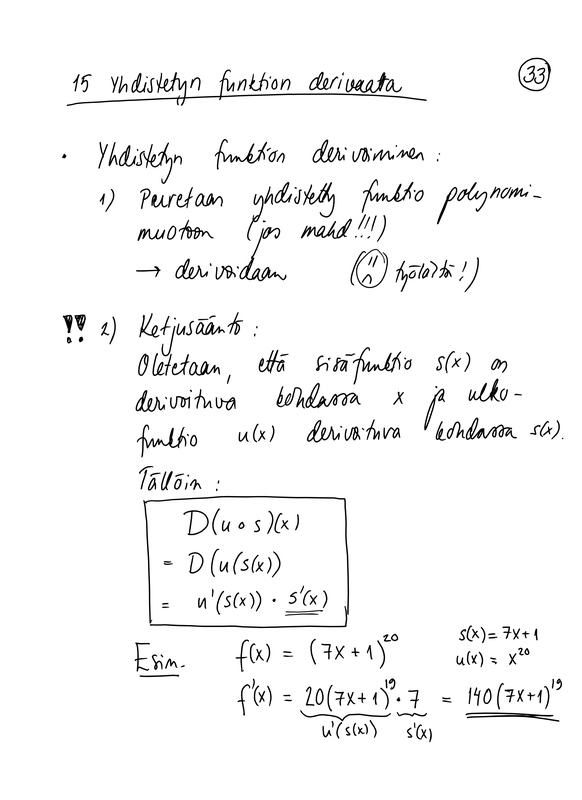 15 Yhdistetyn funktion derivaatta
33
• Yhdistetyn funktion derivoiminen :
1) Puretaan yhdistetty funktio polynomi-
muotoon (jos mahd!!!)
→ derivoidaan ( työlästä!)
!! 2) Ketjusääntö :
Oletetaan, että sisäfunktio s(x) on
derivoituva kohdassa x ja ulko-
funktio u(x) derivoituva kohdassa s(x).
Tällöin :
D(u∘s)(x)
= D(u(s(x))
= u'(s(x)) · s'(x)
Esim. f(x) = (7x+1)²⁰
s(x) = 7x+1
u(x) = x²⁰
f'(x) = 20(7x+1)¹⁹ · 7 = 140(7x+1)¹⁹
u'(s(x)) s'(x)